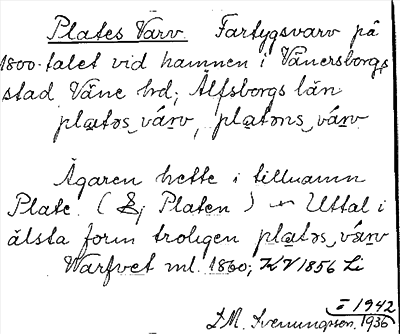 Plates Varv. Fartygsvarv på
1800-talet vid hamnen i Vänersborgs
stad Väne hd; Älfsborgs län
platəs várv, platəns várv
Ägaren hette i tillnamn
Plate. (Ej Platen) — Uttal i
älsta form troligen platəs várv
Warfvet ml. 1860; KV 1856 Li
— 1942
1936